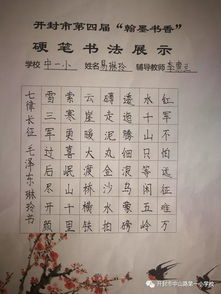 开封市第四届“翰墨书香”
硬笔书法展示
学校 中一小 姓名 易琳玲 辅导教师
红军不怕远征难万
水千山只等闲五岭
逶迤腾细浪乌蒙磅
礴走泥丸金沙水拍
云崖暖大渡桥横铁
索寒更喜岷山千里
雪三军过后尽开颜
七律长征 毛泽东 琳玲书
开封市中山路第一小学校